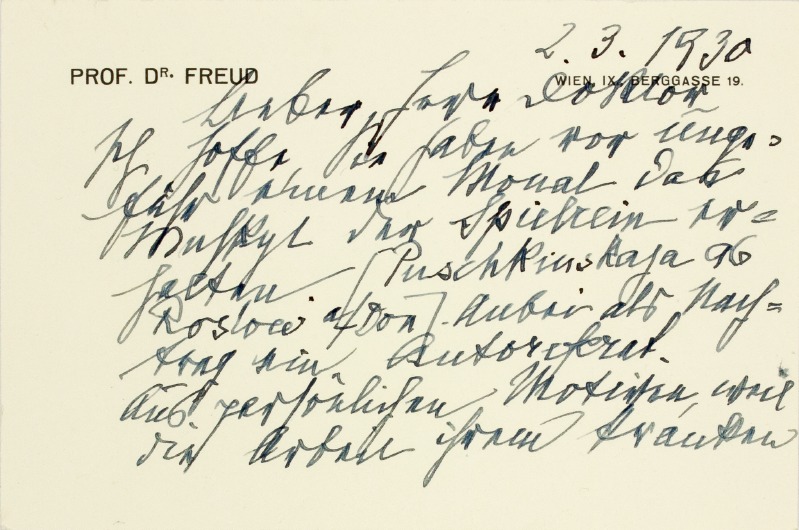 2. 3. 1930
PROF. DR. FREUD
WIEN, IX., BERGGASSE 19.
Lieber Herr Doktor
Ich hoffe, Sie haben vor unge-
fähr einem Monat das
Mnskpt der Spielrein er=
halten [Puschkinskaja 96
Rostow a/Don]. Anbei als Nach=
trag ein Autoreferat.
Aus persönlichen Motiven, weil
die Arbeit ihrem kranken